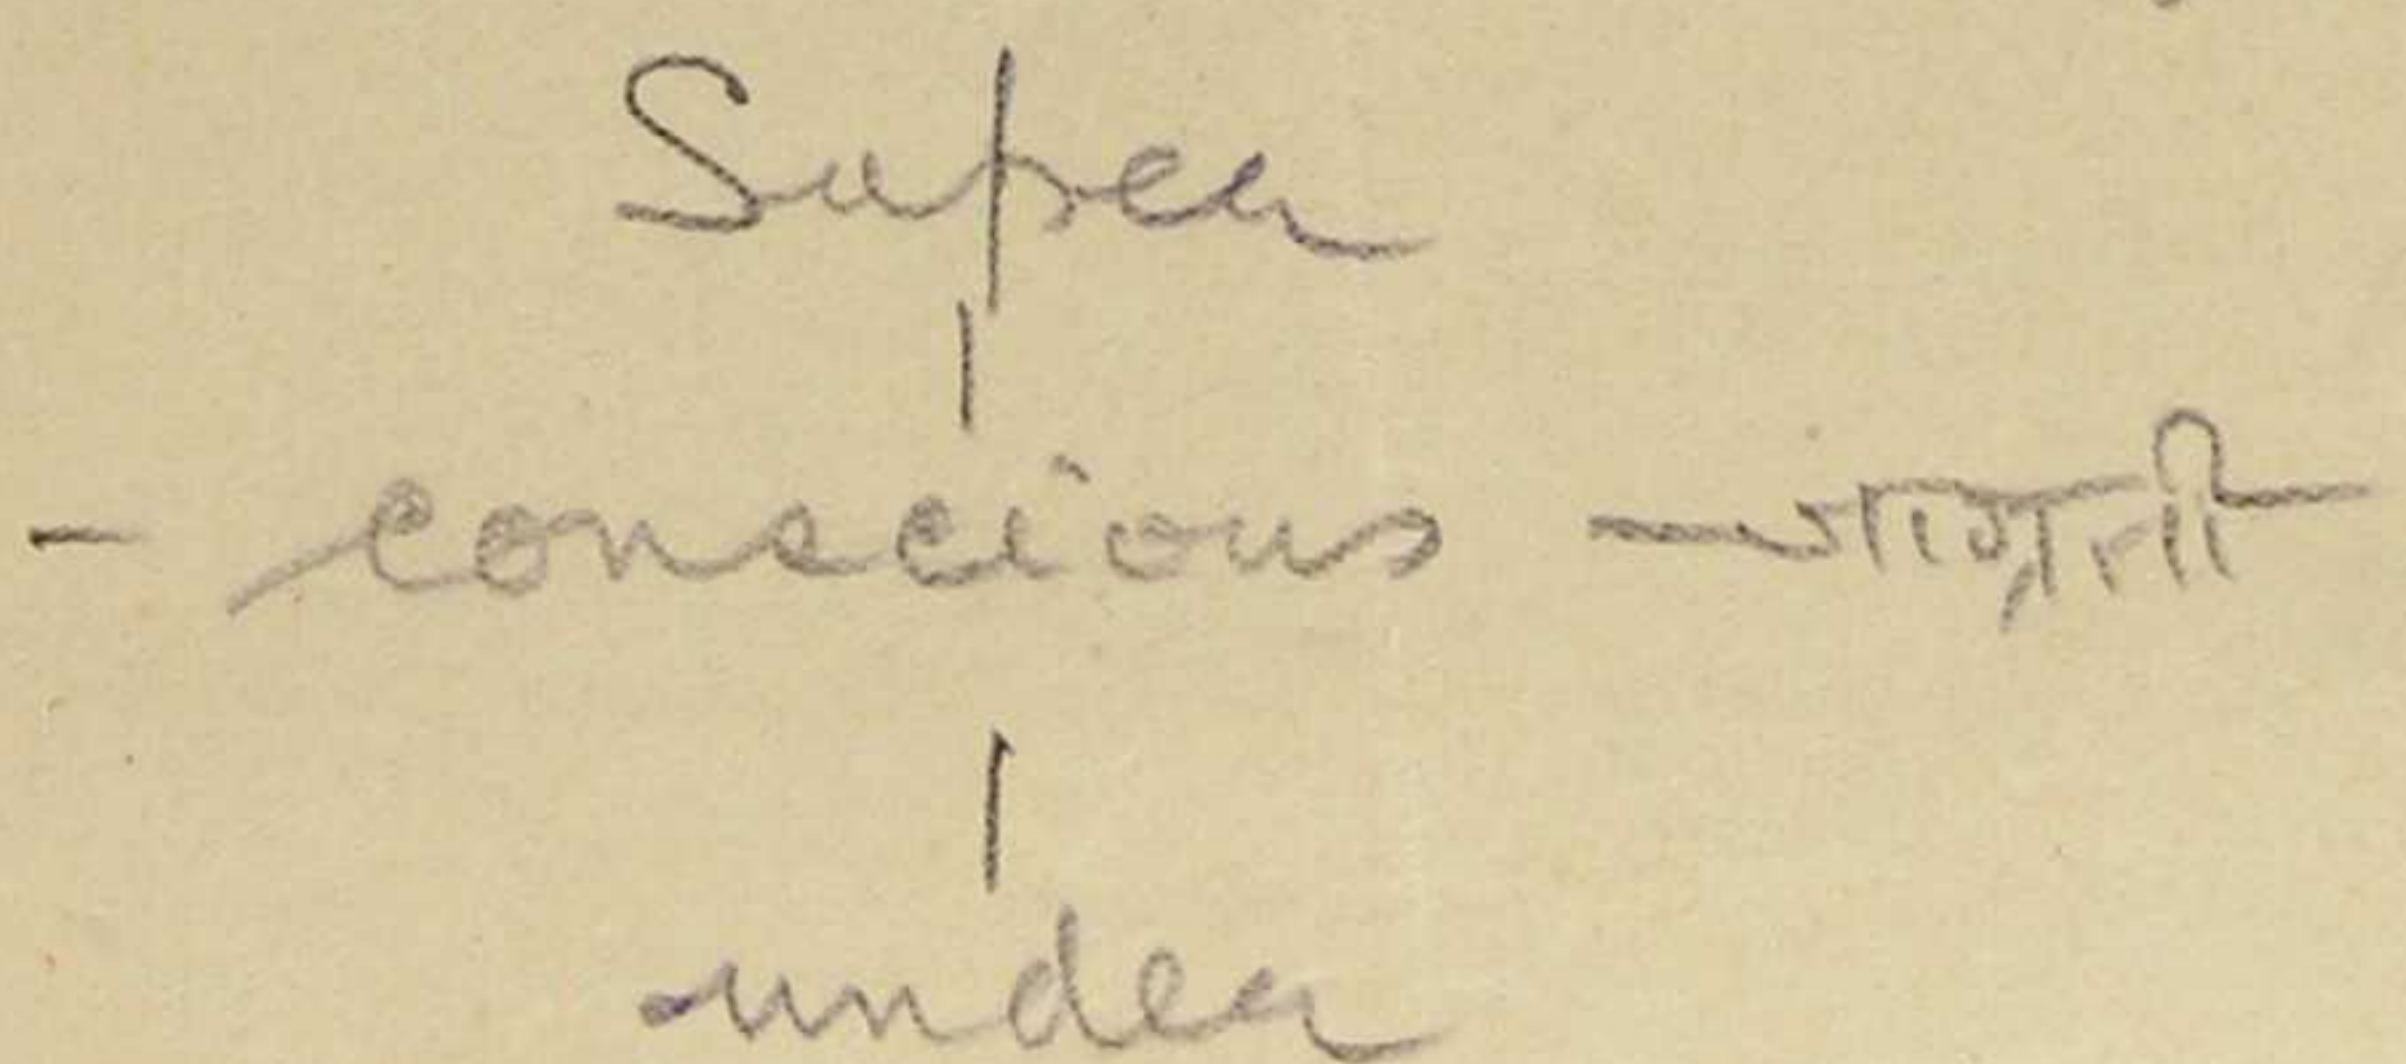 Super
|
- conscious - जागृती
|
under